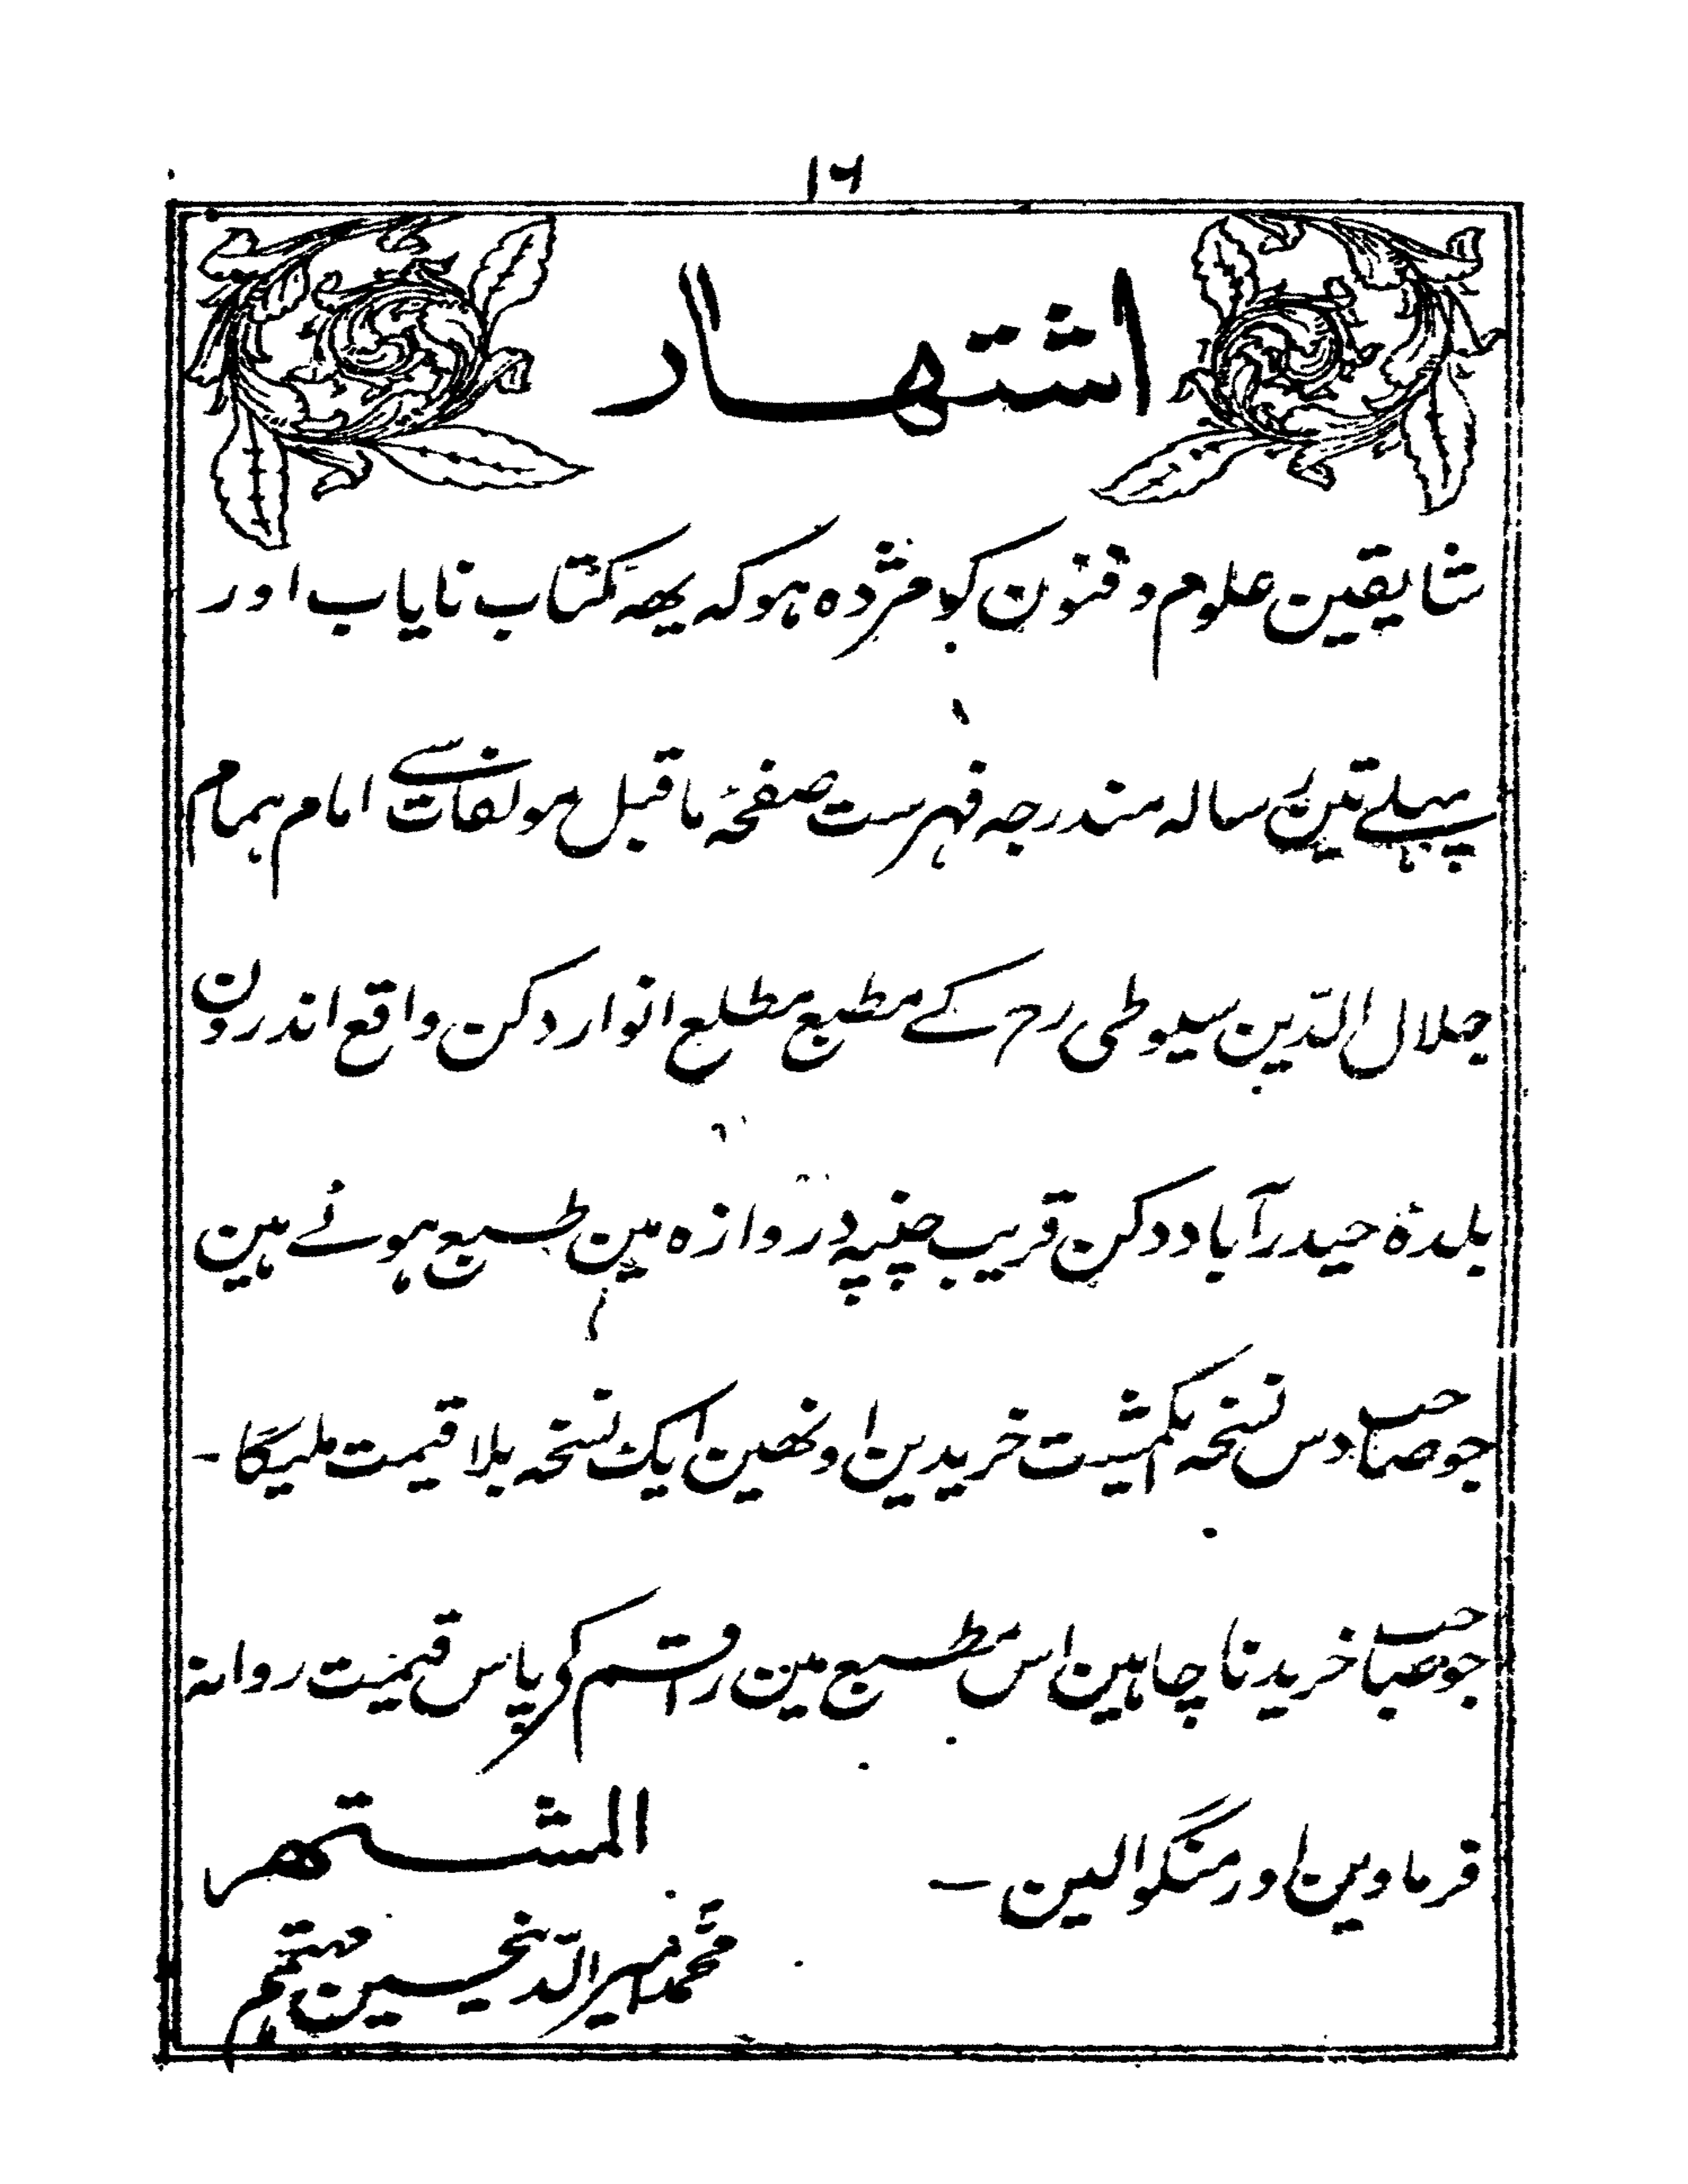 ۱۶
اشتہار
شایقین علوم و فنون کو مژدہ ہو کہ یھہ کتاب نایاب اور
پہلے تین رسالہ مندرجہ فہرست صفحۂ ماقبل مولفات سے امام ہمام
جلال الدّین سیوطی رح کے مطبع مطلع انوار دکن واقع اندرون
بلدۂ حیدرآباد دکن قریب چنپہ دروازہ مین طبع ہوئے ہین
جو صاحب دس نسخہ یکمشیت خریدین اونھین ایک نسخہ بلا قیمت ملیگا ۔
جو صاحب خریدنا چاہین اس مطبع مین راقم کی پاس قیمت روانہ
فرماوین اور منگوالین ۔
المشتھر
محمّد منیر الدّین حسین مہتمم